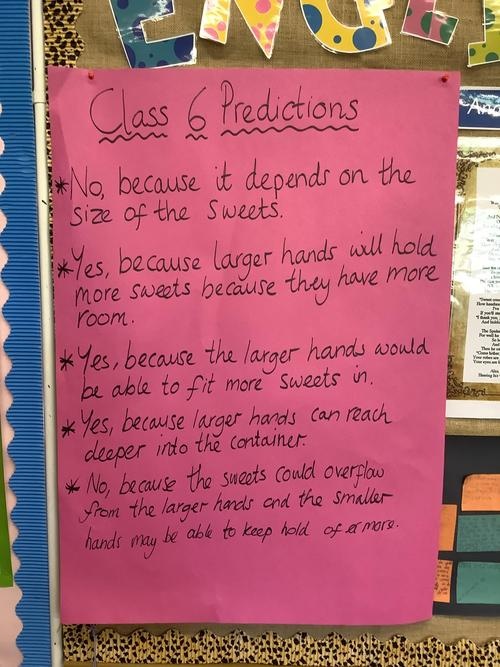 ENGL
Class 6 Predictions
* No, because it depends on the
size of the sweets.
* Yes, because larger hands will hold
more sweets because they have more
room.
* Yes, because the larger hands would
be able to fit more sweets in.
* Yes, because larger hands can reach
deeper into the container.
* No, because the sweets could overflow
from the larger hands and the smaller
hands may be able to keep hold of more.